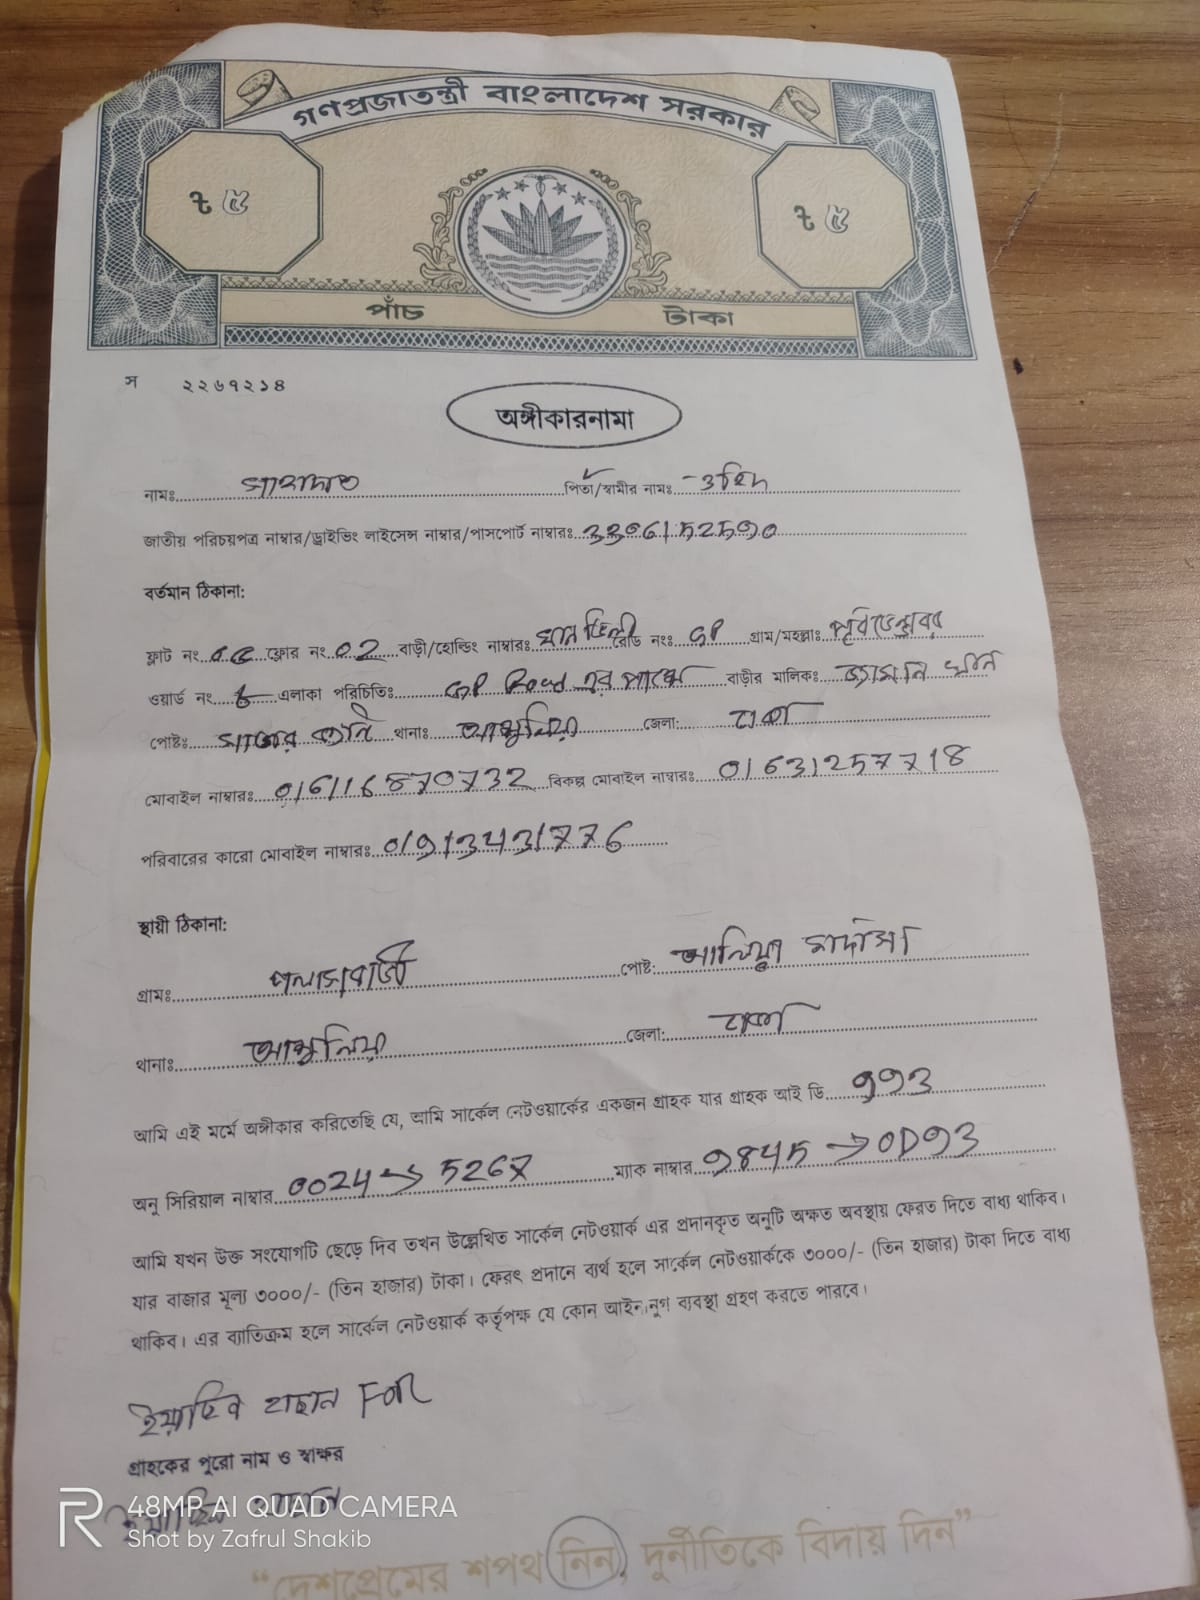 গণপ্রজাতন্ত্রী বাংলাদেশ সরকার
৳ ৫ ৳ ৫
পাঁচ টাকা
স ২২৬৭২১৪
অঙ্গীকারনামা
নামঃ সাহাদাত পিতা/স্বামীর নামঃ
জাতীয় পরিচয়পত্র নাম্বার/ড্রাইভিং লাইসেন্স নাম্বার/পাসপোর্ট নাম্বারঃ
বর্তমান ঠিকানা:
ফ্লাট নং ফ্লোর নং 02 বাড়ী/হোল্ডিং নাম্বারঃ খান ভিলা রোড নং: GP গ্রাম/মহল্লাঃ
ওয়ার্ড নং এলাকা পরিচিতিঃ GP Road এর পাশে বাড়ীর মালিকঃ খান
পোষ্টঃ থানাঃ আশুলিয়া জেলা: ঢাকা
মোবাইল নাম্বারঃ 016116870732 বিকল্প মোবাইল নাম্বারঃ 01631257718
পরিবারের কারো মোবাইল নাম্বারঃ 01913431776
স্থায়ী ঠিকানা:
গ্রামঃ পলাশবাড়ী পোষ্ট: আলিয়া মাদ্রাসা
থানাঃ আশুলিয়া জেলা: ঢাকা
আমি এই মর্মে অঙ্গীকার করিতেছি যে, আমি সার্কেল নেটওয়ার্কের একজন গ্রাহক যার গ্রাহক আই ডি 993
অনু সিরিয়াল নাম্বার 0024→5267 ম্যাক নাম্বার 9845→0D93
আমি যখন উক্ত সংযোগটি ছেড়ে দিব তখন উল্লেখিত সার্কেল নেটওয়ার্ক এর প্রদানকৃত অনুটি অক্ষত অবস্থায় ফেরত দিতে বাধ্য থাকিব।
যার বাজার মূল্য ৩০০০/- (তিন হাজার) টাকা। ফেরৎ প্রদানে ব্যর্থ হলে সার্কেল নেটওয়ার্ককে ৩০০০/- (তিন হাজার) টাকা দিতে বাধ্য
থাকিব। এর ব্যাতিক্রম হলে সার্কেল নেটওয়ার্ক কর্তৃপক্ষ যে কোন আইনানুগ ব্যবস্থা গ্রহণ করতে পারবে।
ইয়াছিন হাছান FOR
গ্রাহকের পুরো নাম ও স্বাক্ষর
48MP AI QUAD CAMERA
Shot by Zafrul Shakib
“দেশপ্রেমের শপথ নিন, দুর্নীতিকে বিদায় দিন”